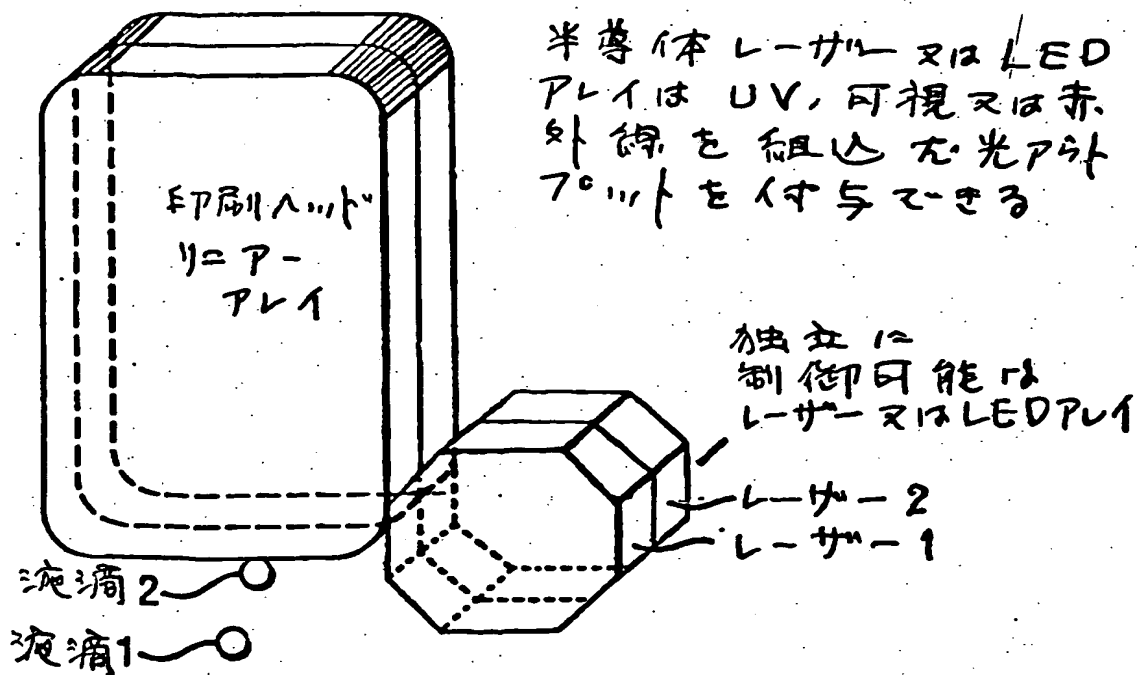 半導体レーザー又はLED
アレイはUV,可視又は赤
外線を組込む光アウト
プットを付与できる
印刷ヘッド
リニアー
アレイ
独立に
制御可能な
レーザー又はLEDアレイ
レーザー2
レーザー1
液滴2
液滴1